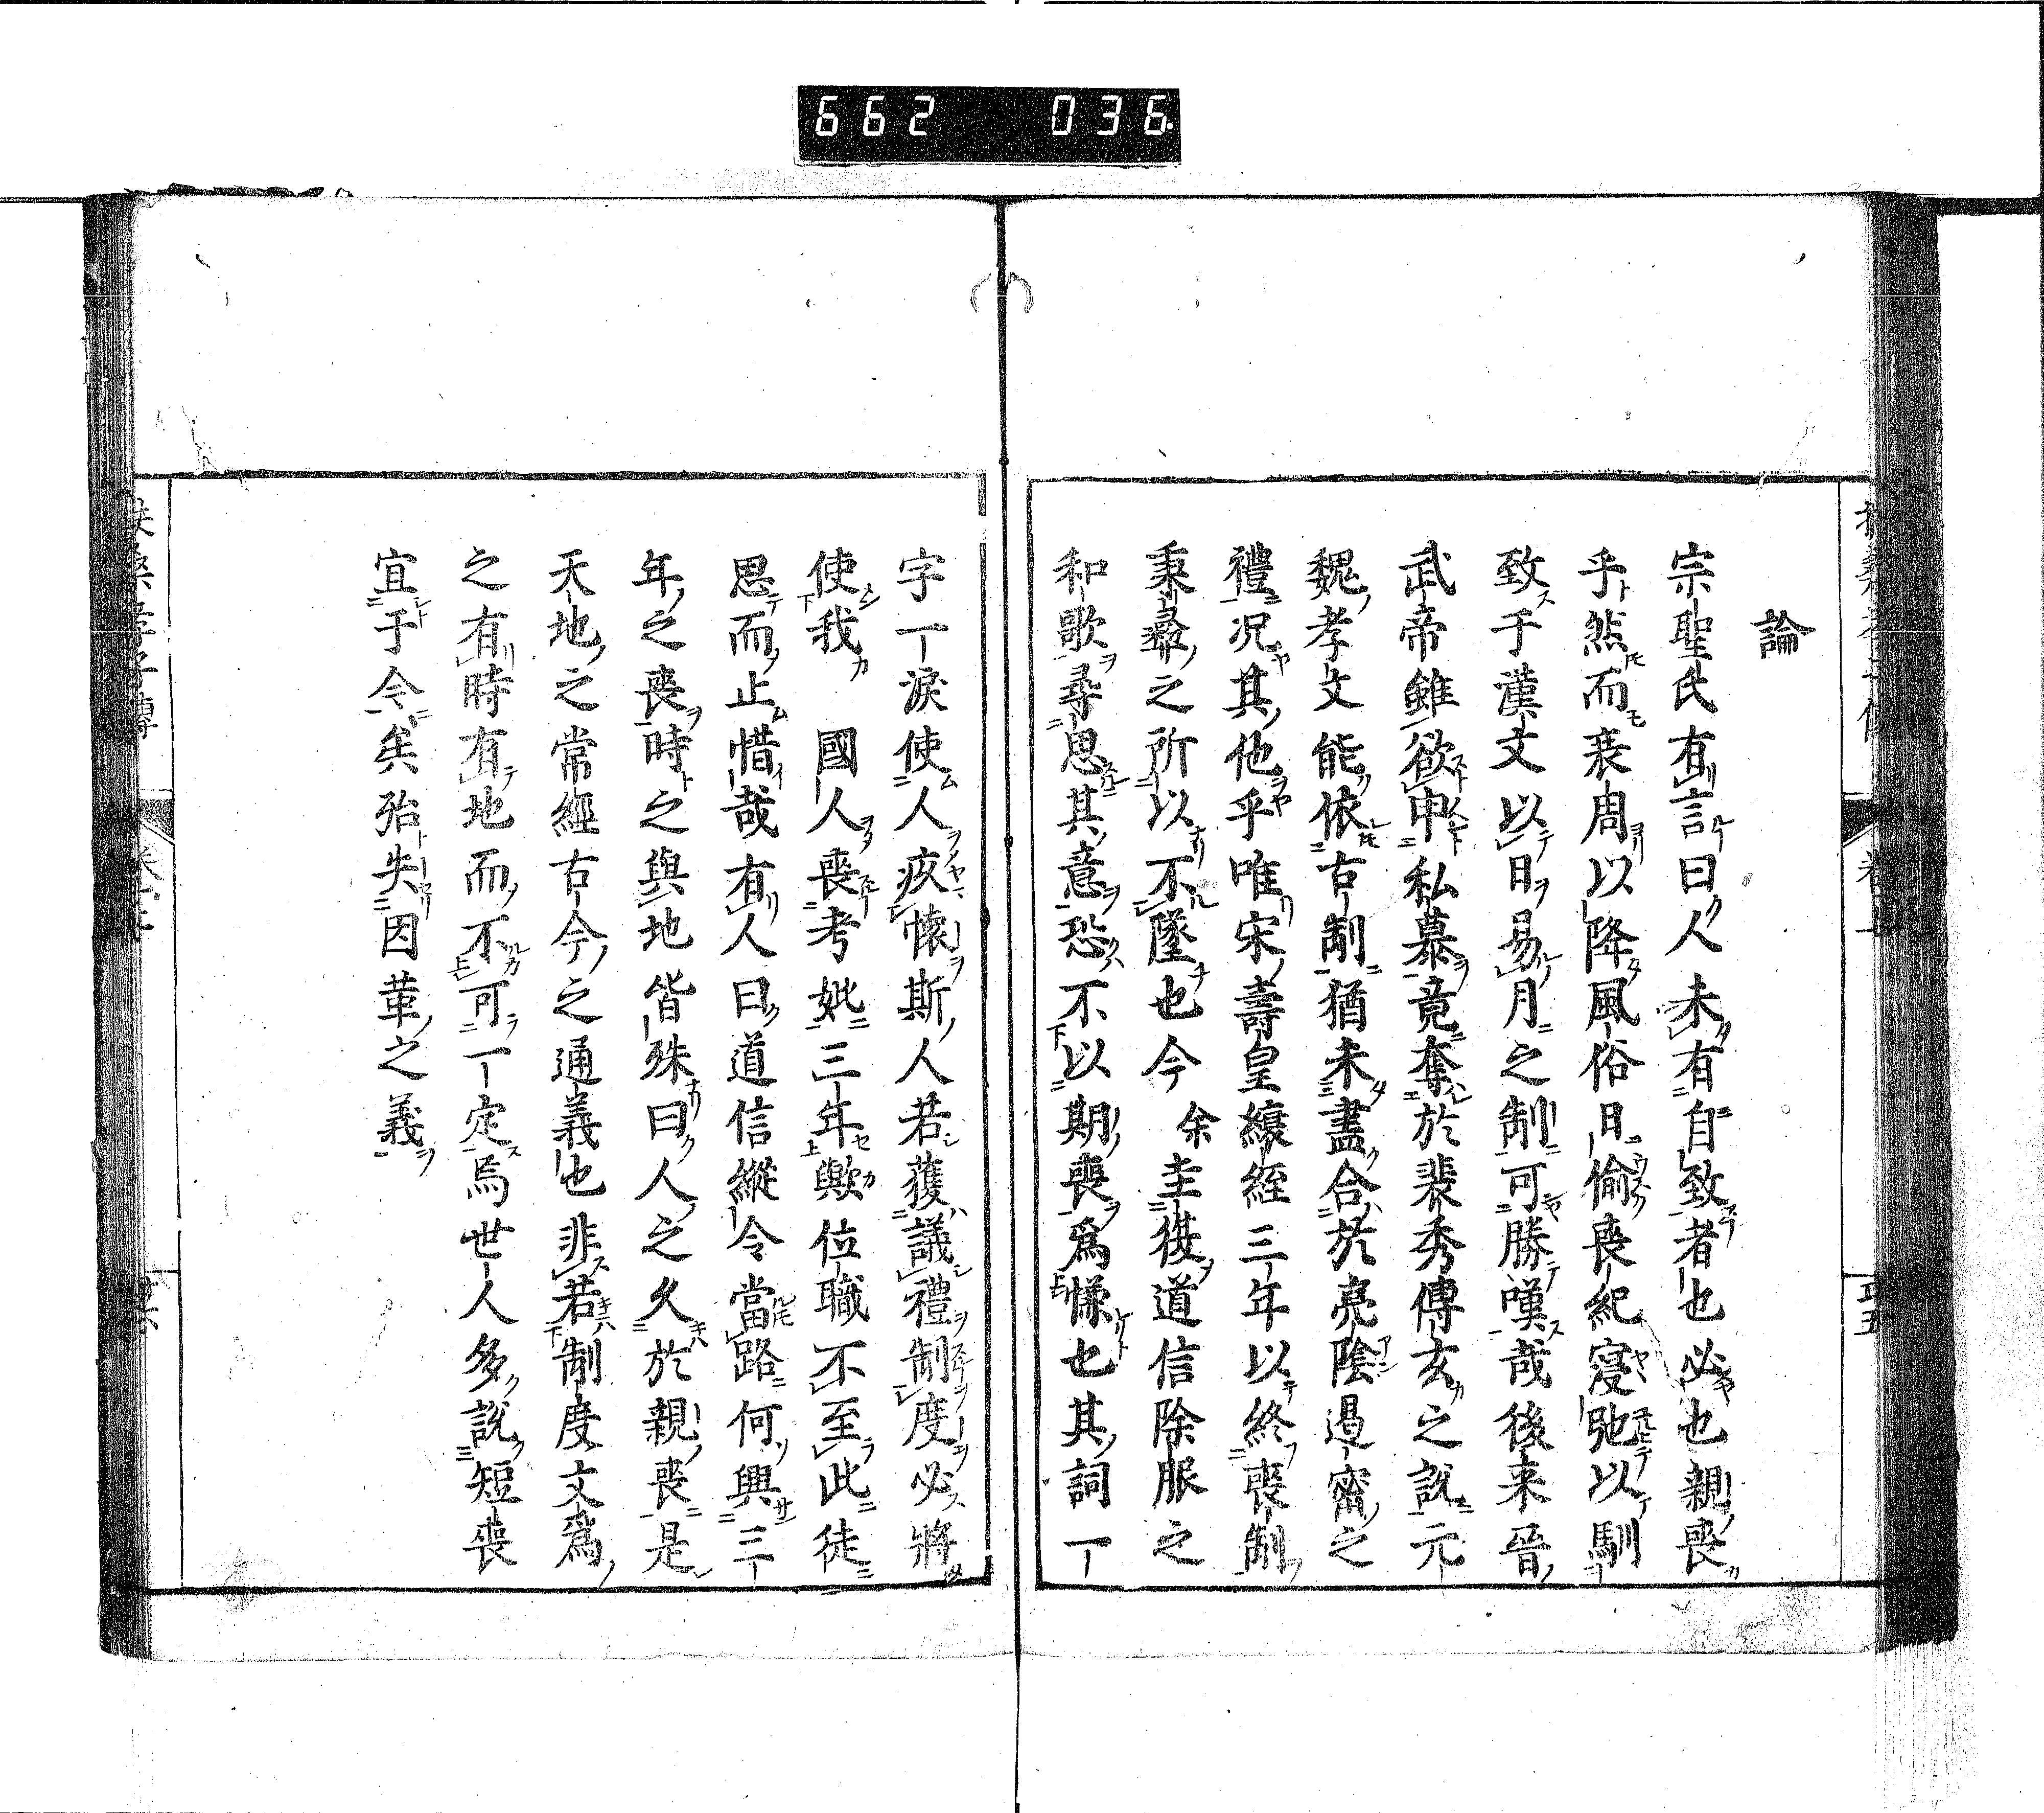 662 036
論
宗聖氏有言曰人未有自致者也必也親喪
乎然而衰周以降風俗日偷喪紀寖弛以馴
致于漢文以日易月之制可勝嘆哉後来晉
武帝雖欲申私慕竟奪於裴秀傅玄之說元
魏孝文能依古制猶未盡合於亮陰過密之
禮况其他乎唯宋壽皇縗絰三年以終喪制
秉彝之所以不墜也今 余圭復道信除服之
和歌尋思其意恐不以期喪爲慊也其詞一
字一淚使人疚懷斯人若獲議禮制度必將
使我 國人喪考妣三年歟位職不至此徒
思而止惜哉有人曰道信縱令當路何興三
年之喪時之與地皆殊曰人之久於親喪是
天地之常經古今之通義也非若制度文爲
之有時有地而不可一定焉世人多說短喪
宜于今矣殆失因革之義
扶桑孝子傳